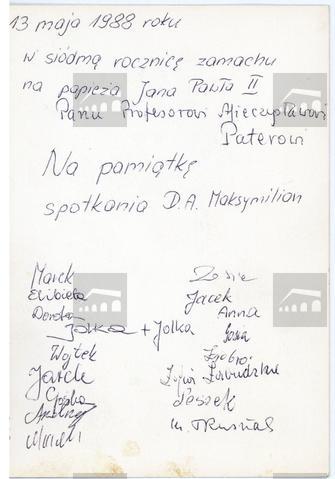 13 maja 1988 roku
w siódmą rocznicę zamachu
na papieża Jana Pawła II
Panu Profesorowi Mieczysławowi
Paterowi
Na pamiątkę
spotkania D.A. Maksymilian
Marek
Elżbieta
Dorota
Jolka + Jolka
Wojtek
Jacek
Gosia
Andrzej
Zosia
Jacek
Anna
Gosia
Leszek